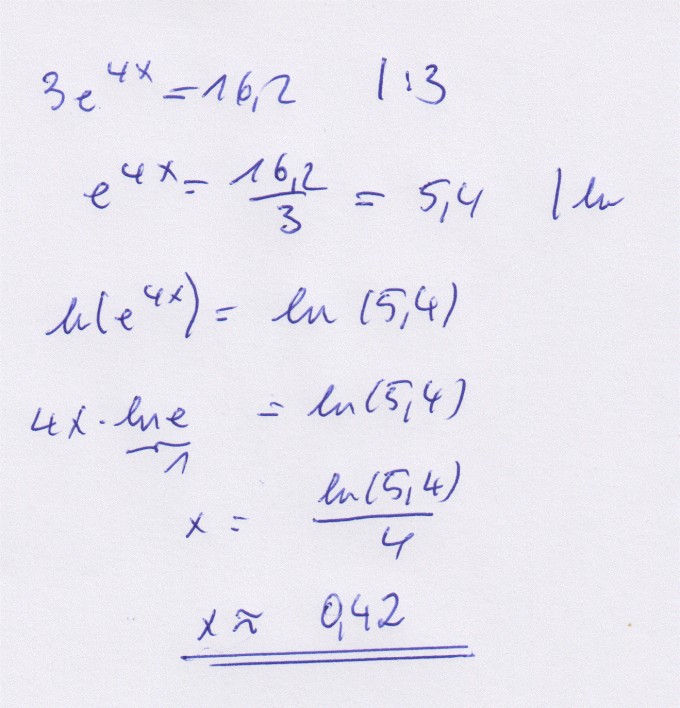 3e^{4x} = 16,2 | :3
e^{4x} = \frac{16,2}{3} = 5,4 | ln
ln(e^{4x}) = ln (5,4)
4x · \underbrace{ln e}_{1} = ln(5,4)
x = \frac{ln(5,4)}{4}
x ≈ 0,42